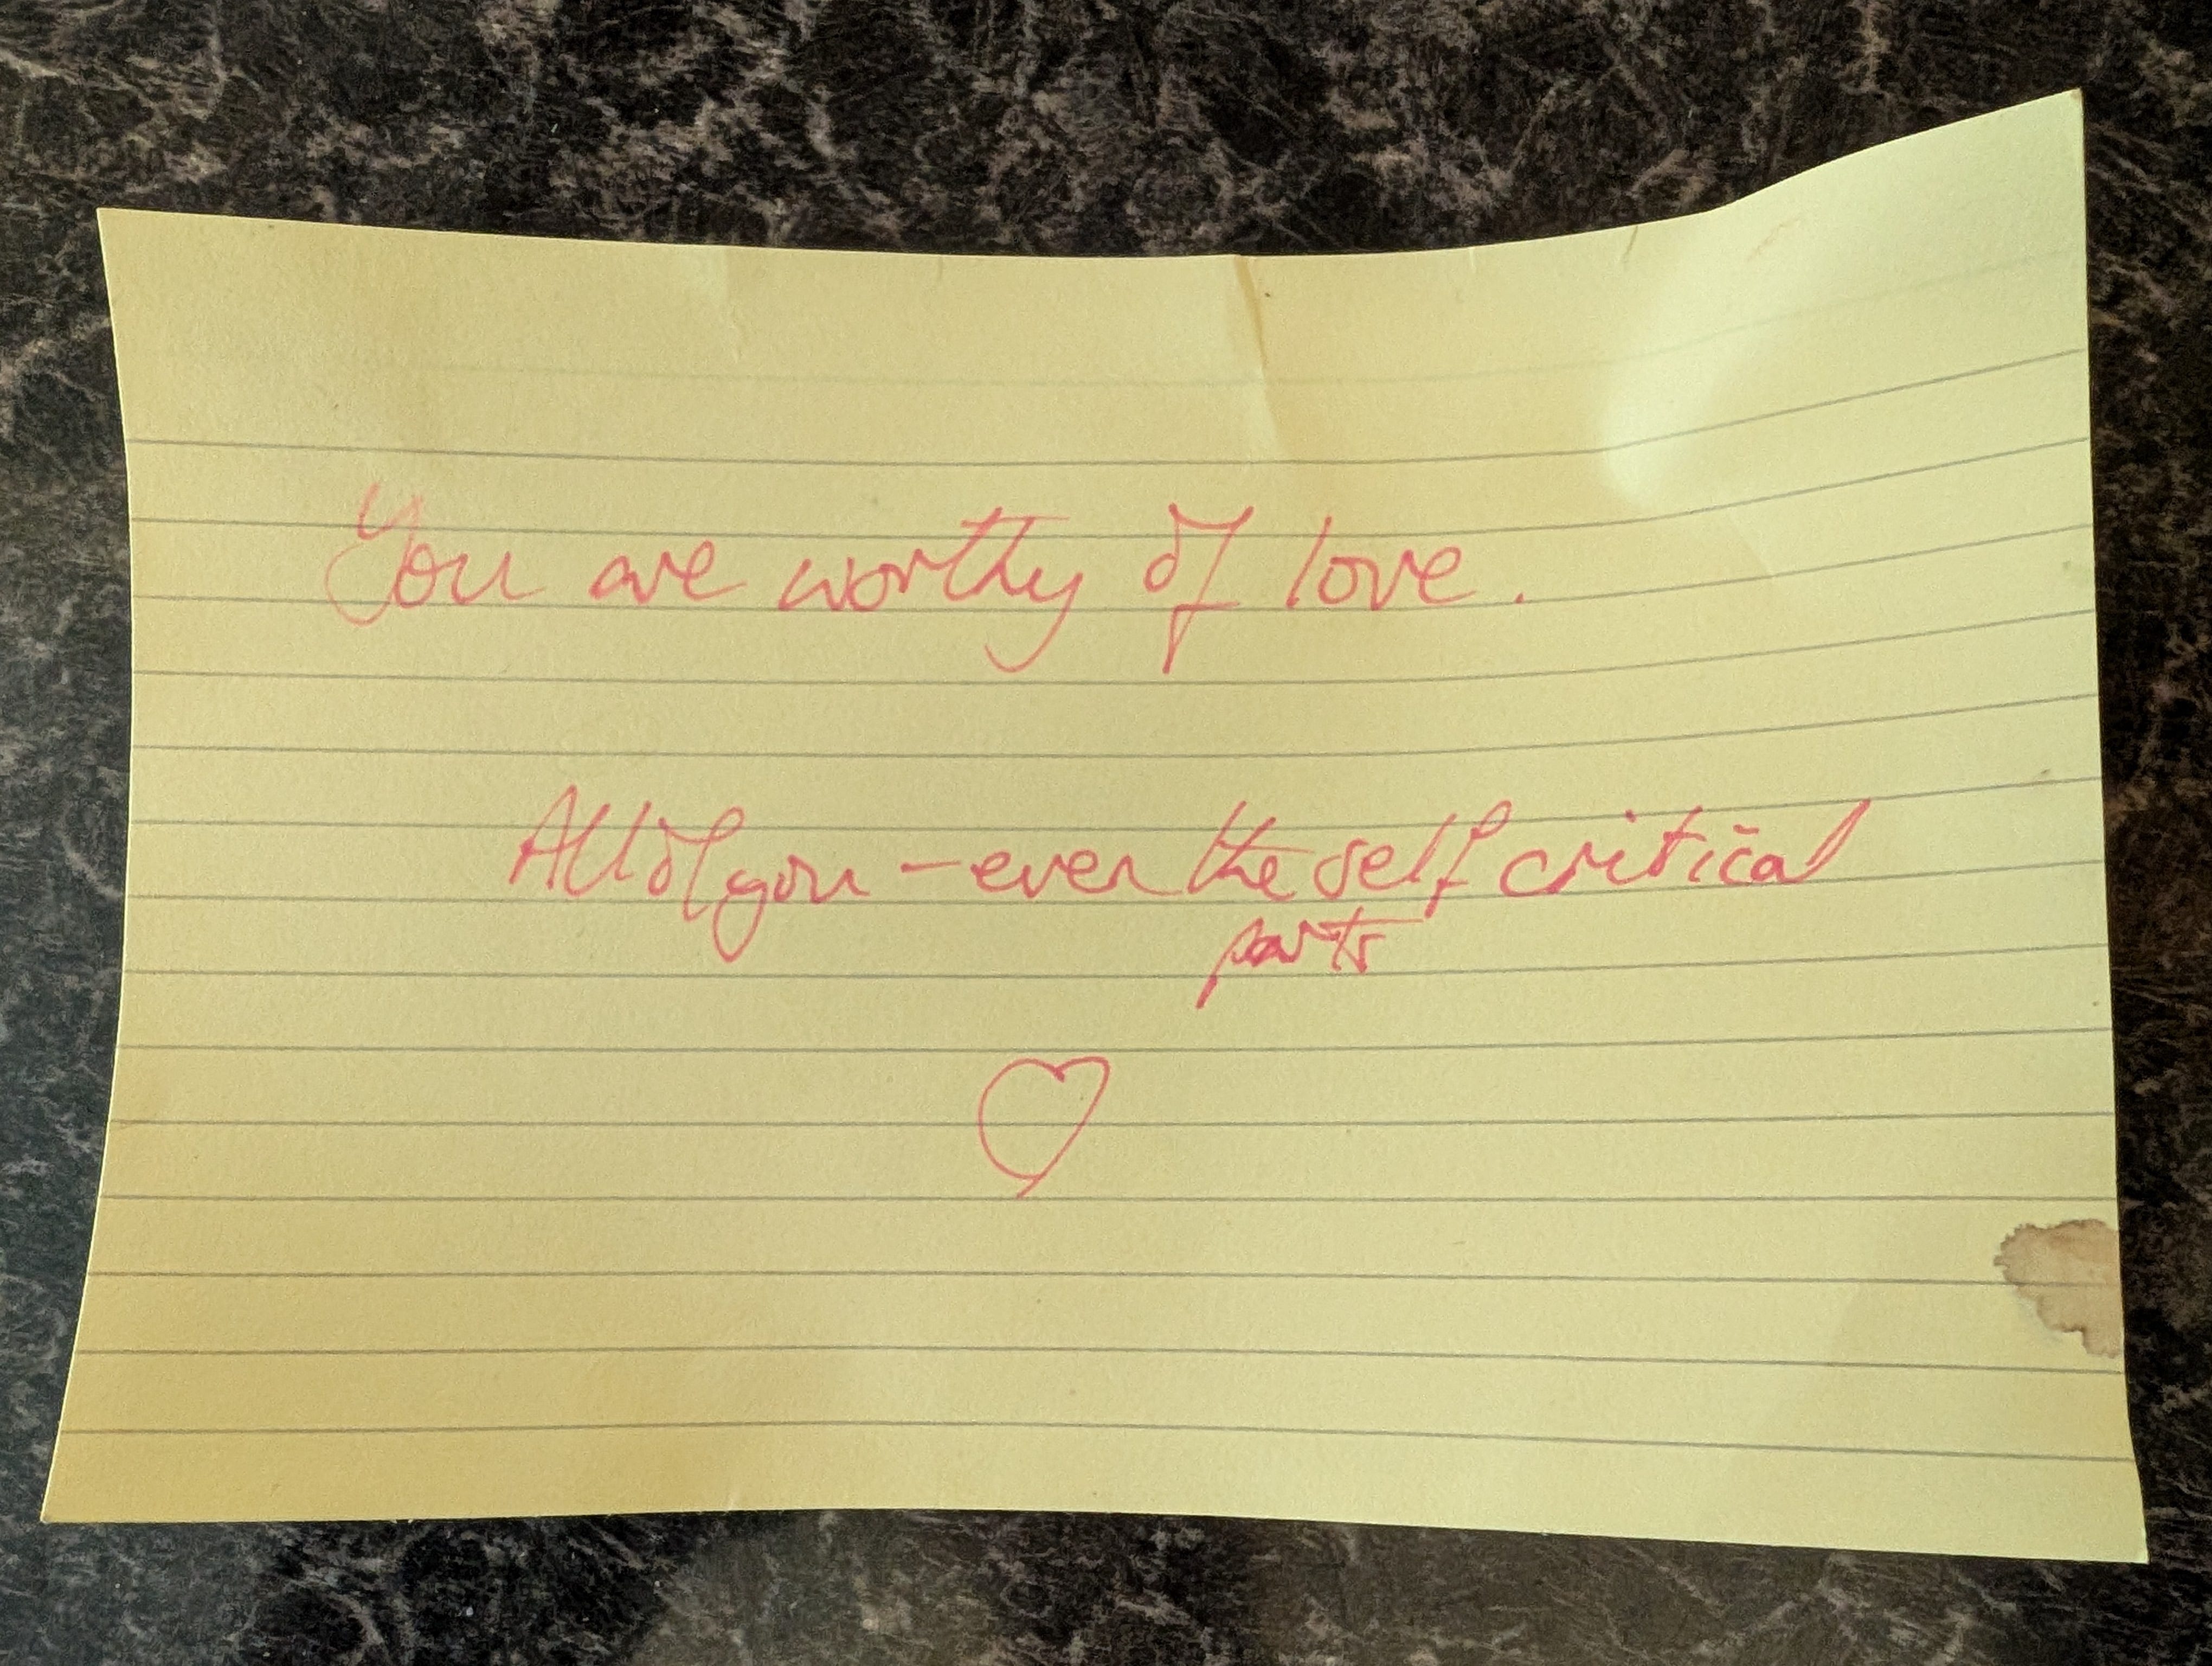 You are worthy of love.
All of you – even the self critical
parts